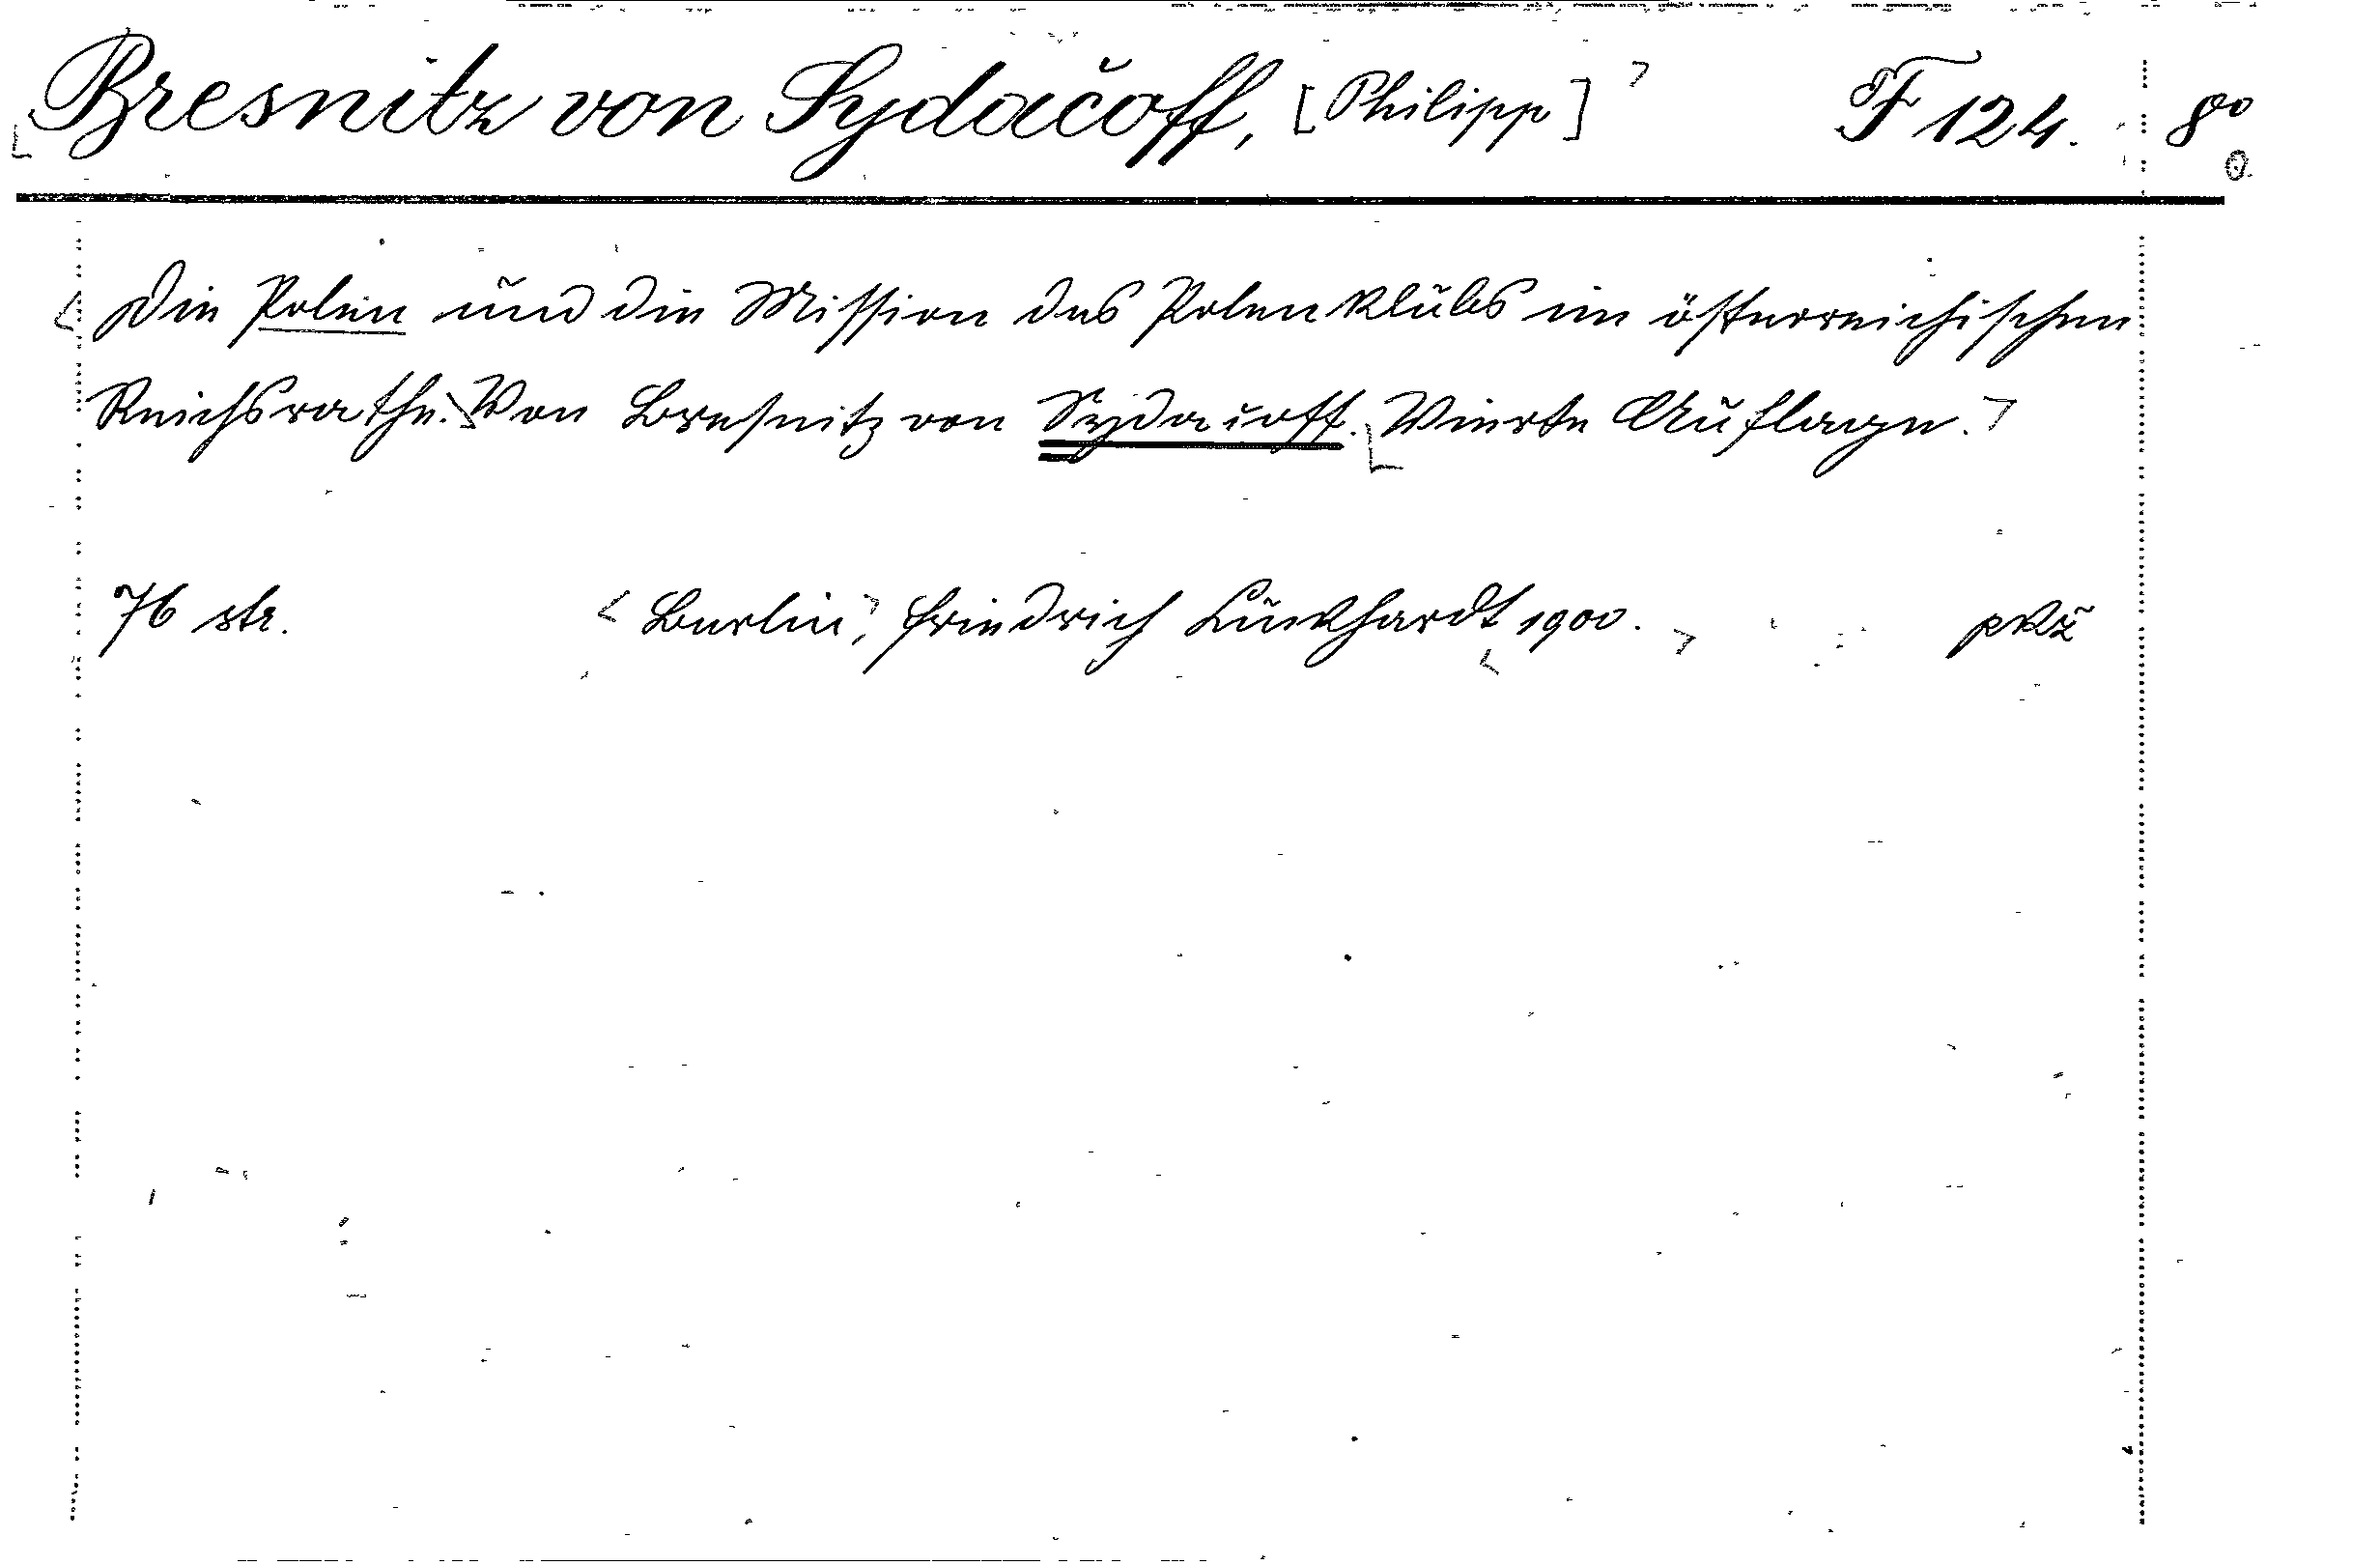 Bresnitz von Sydačoff, [Philipp] F 124. 8°
Die Polen und die Mission des Polenklubs im österreichischen
Reichsrathe. Von Bresnitz von Sydacoff. Vierte Auflage.
76 str. Berlin, Friedrich Luckhardt 1900.